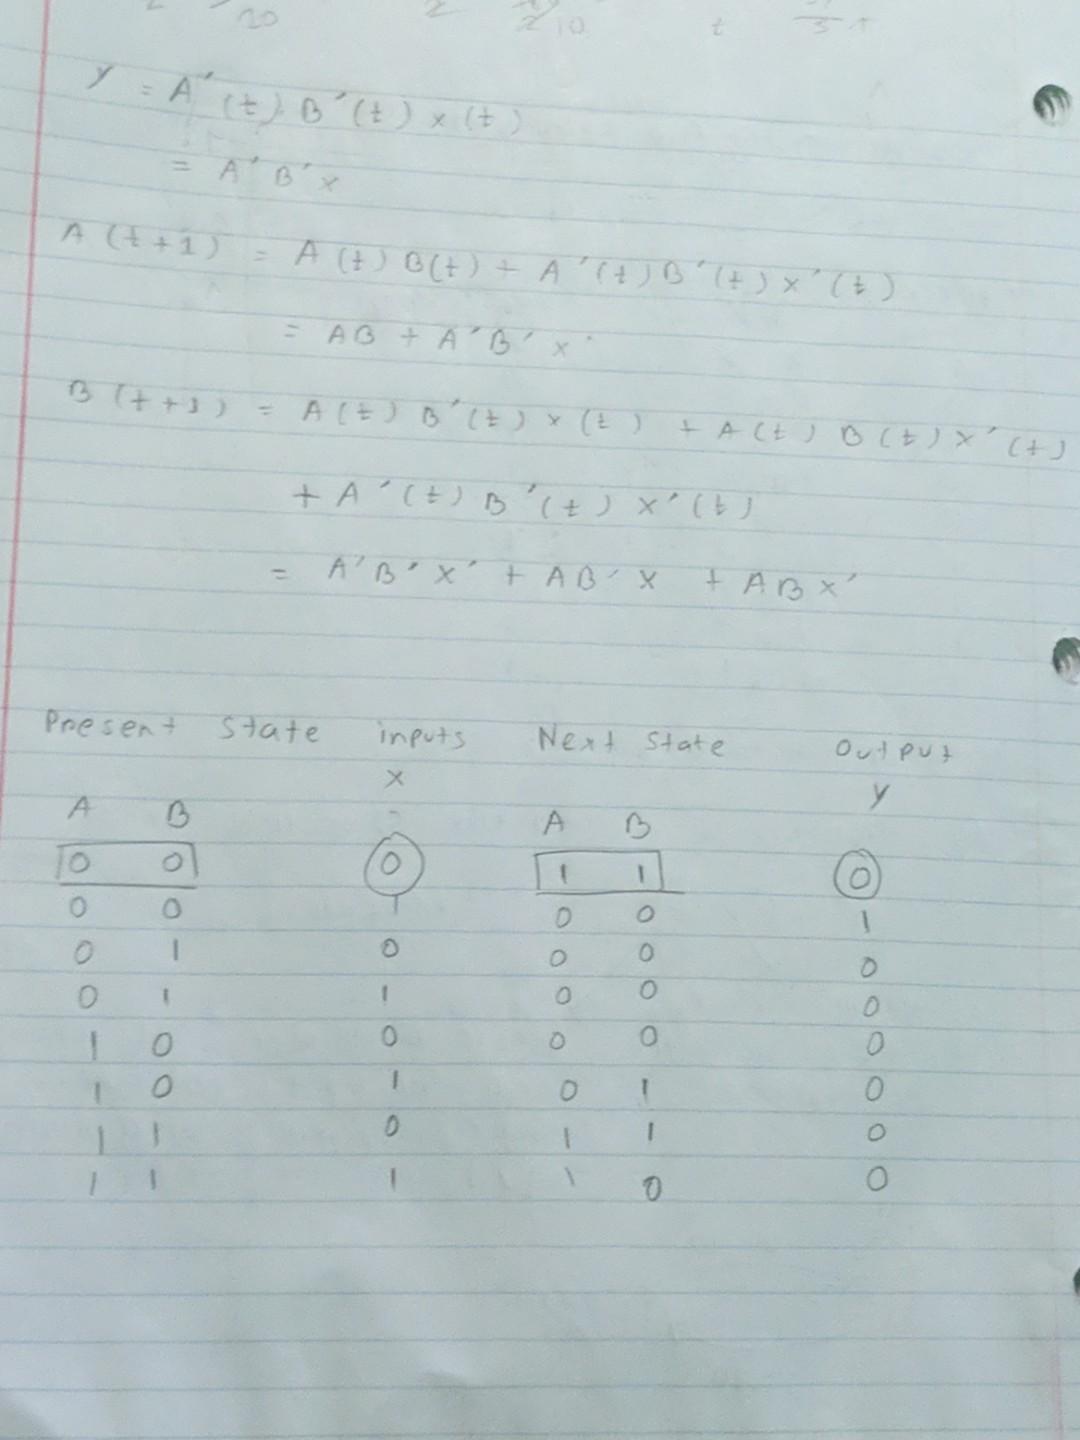 20 2 10 t 3
y = A'(t) B'(t) x(t)
= A'B'x
A(t+1) = A(t) B(t) + A'(t) B'(t) x'(t)
= AB + A'B'x'
B(t+1) = A(t) B'(t) x(t) + A(t) B(t) x'(t)
+ A'(t) B'(t) x'(t)
= A'B'x' + AB'x + ABx'
Present State inputs Next State Output
x y
A B A B
0 0 0 1 1 0
0 0 1 0 0 1
0 1 0 0 0 0
0 1 1 0 0 0
1 0 0 0 0 0
1 0 1 0 1 0
1 1 0 1 1 0
1 1 1 1 0 0